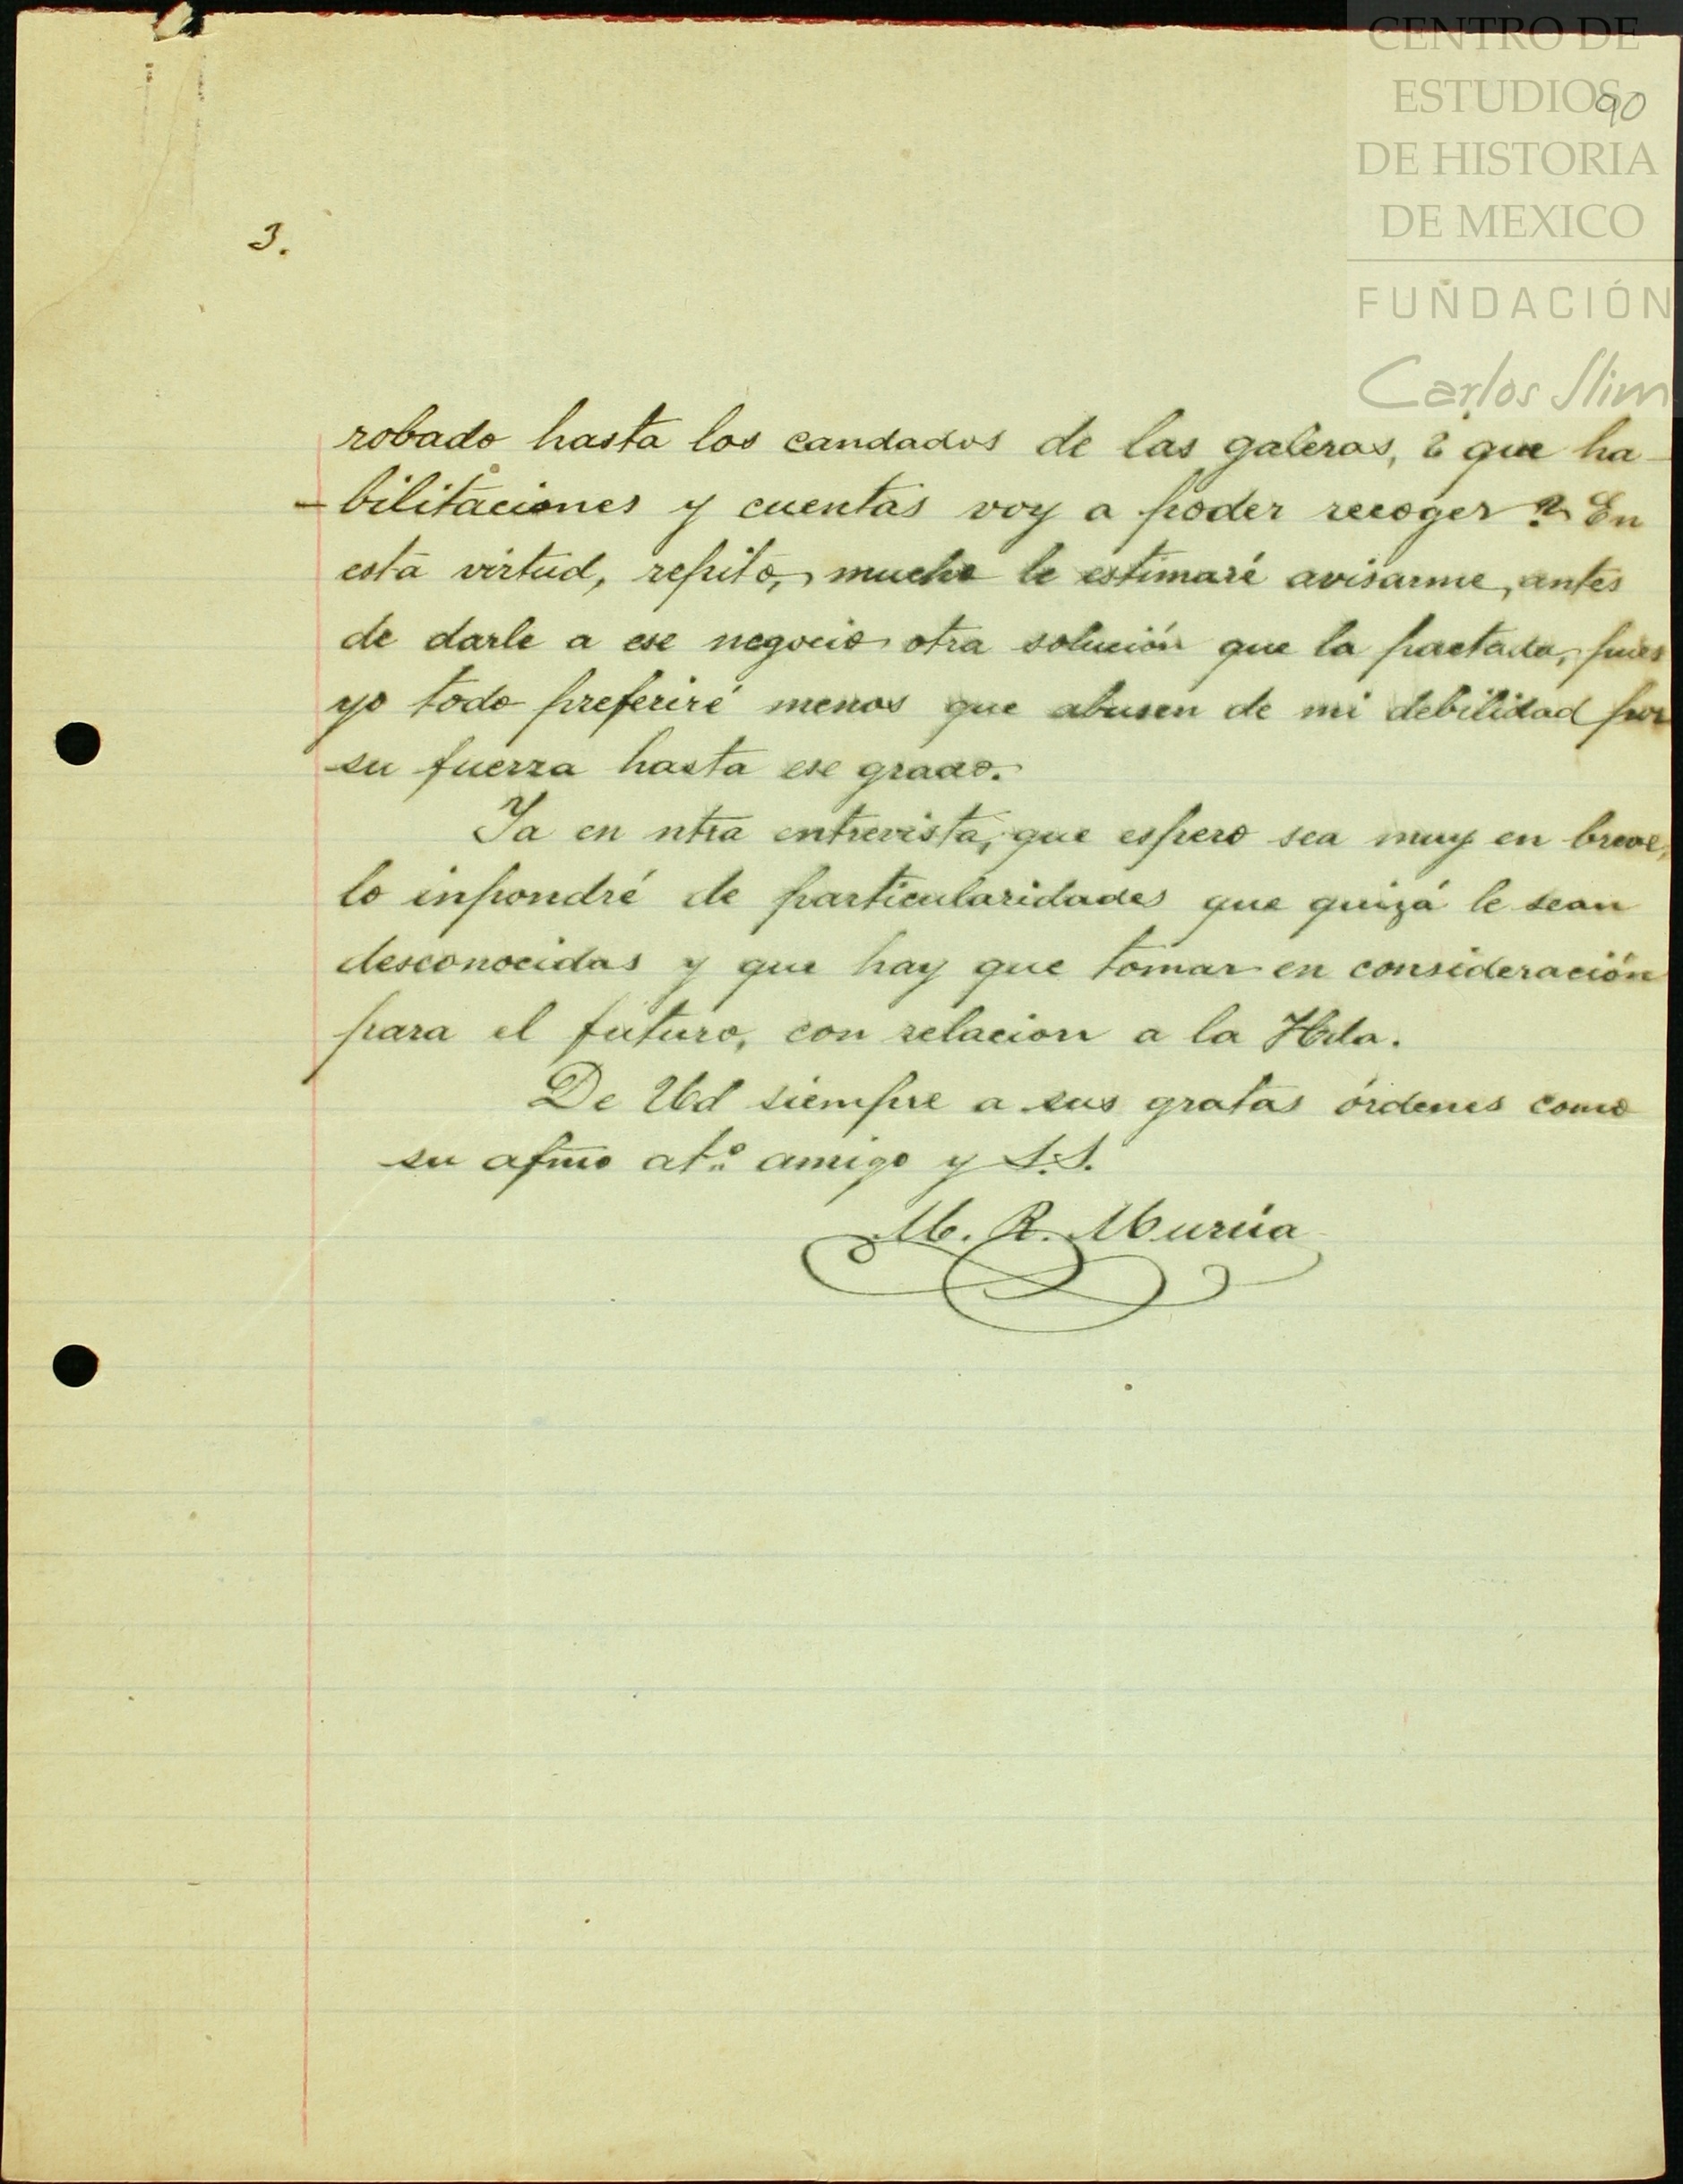 CENTRO DE
ESTUDIOS
90
DE HISTORIA
DE MEXICO
FUNDACIÓN
Carlos Slim
3.
robado hasta los candados de las galeras, ¿ que ha-
-bilitaciones y cuentas voy a poder recoger? En
esta virtud, repito, mucho le estimaré avisarme, antes
de darle a ese negocio otra solución que la pactada, pues
yo todo preferiré menos que abusen de mi debilidad por
su fuerza hasta ese grado.
Ya en ntra entrevista, que espero sea muy en breve,
lo inpondré de particularidades que quizá le sean
desconocidas y que hay que tomar en consideración
para el futuro, con relacion a la Hda.
De Ud siempre a sus gratas órdenes como
su afmo ato amigo y S.S.
M. R. Murúa